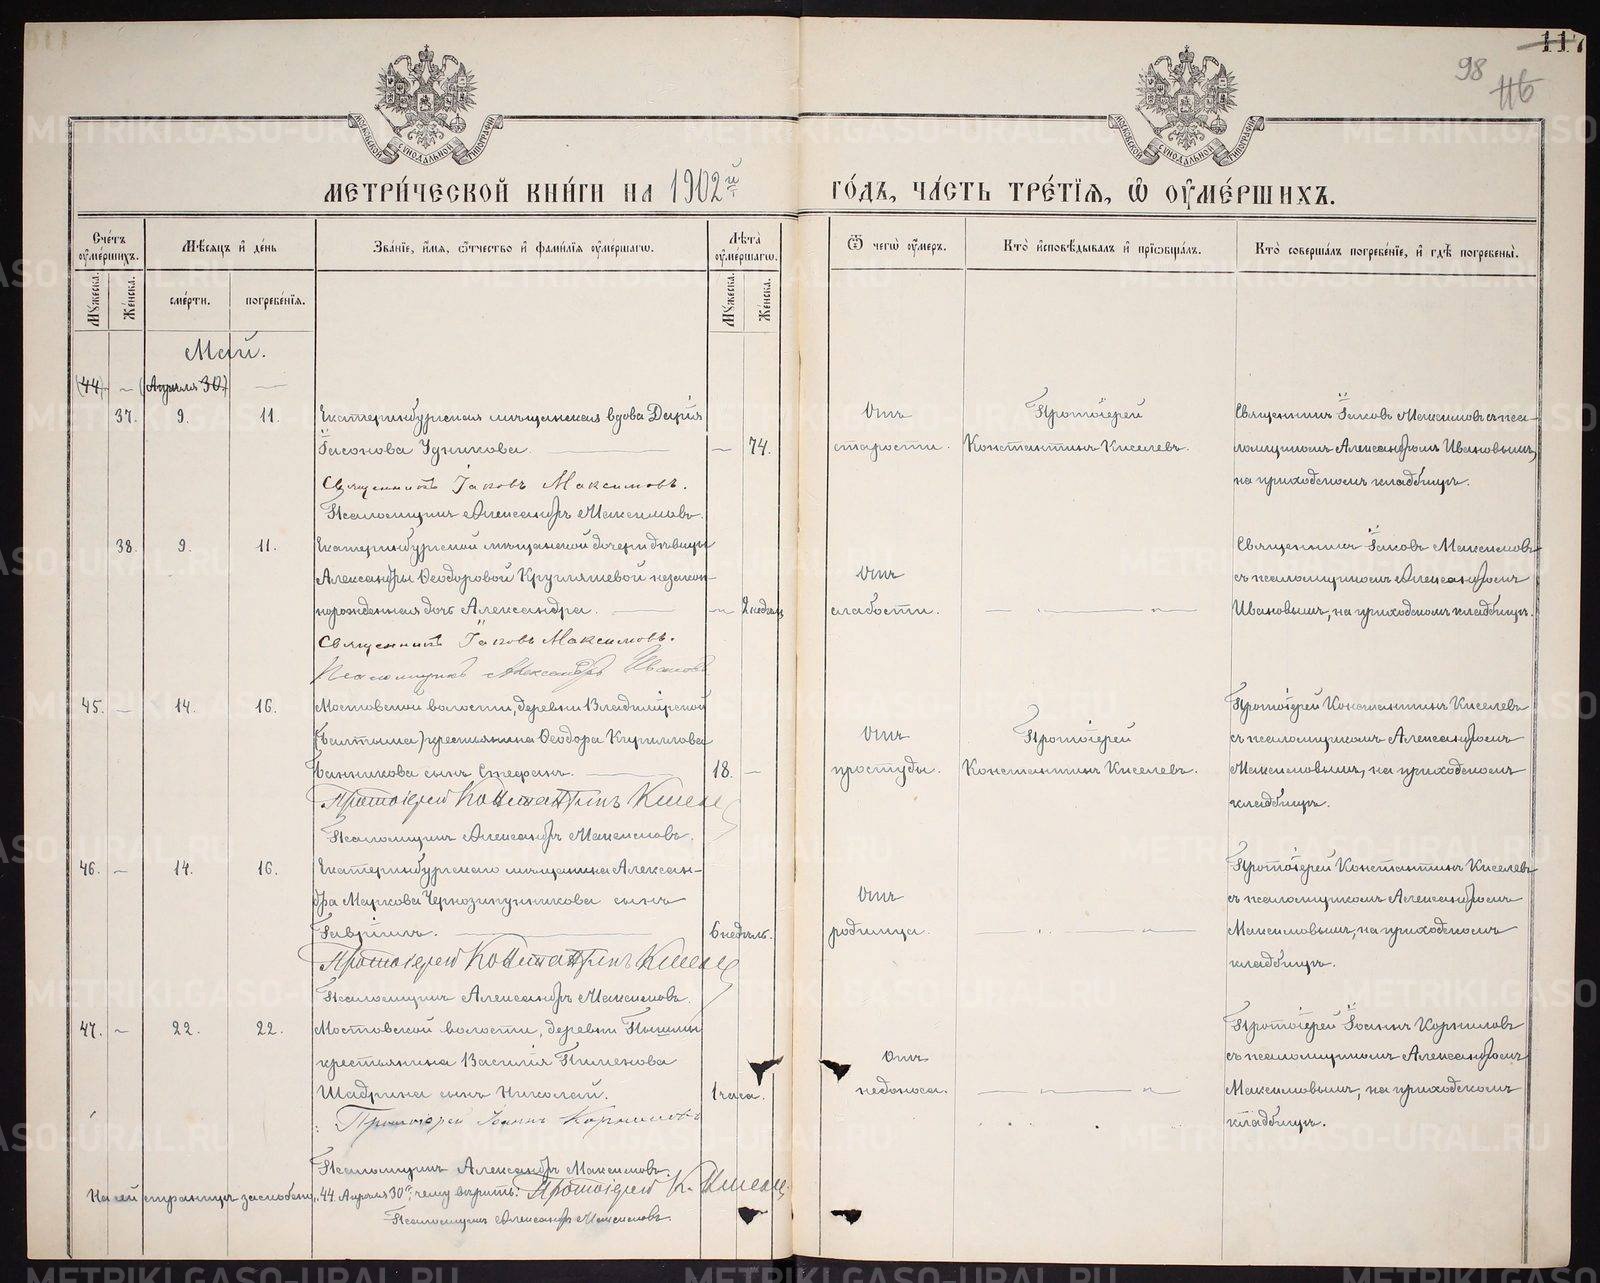 117
98
116
МОСКОВСКОЙ СѴНОДАЛЬНОЙ ТИПОГРАФІИ
МОСКОВСКОЙ СѴНОДАЛЬНОЙ ТИПОГРАФІИ
МЕТРИ́ЧЕСКОЙ КНИ́ГИ НА 1902й ГО́ДЪ, ЧА́СТЬ ТРЕ́ТІЯ, Ѿ ОУМЕ́РШИХЪ.
Сче́тъ оумершихъ.
Мѣсяцъ и де́нь
Зва́ніе, и́мя, о́тчество и фами́лія оуме́ршагѡ.
Лѣта̀ оуме́ршагѡ.
Ѿ чегѡ̀ оу́меръ.
Кто̀ исповѣ́дывалъ и пріѡбща́лъ.
Кто̀ соверша́лъ погребе́ніе, и гдѣ̀ погребены̀.
Мꙋ́жеска.
Же́нска.
сме́рти.
погребе́нія.
Мꙋ́жеска.
Же́нска.
Май.
(44) – (Апрѣля 30) —
37. 9. 11. Екатеринбургская мѣщанская вдова Дарія
Іасонова Удникова. — – 74.
Священникъ Іаковъ Максимовъ.
Псаломщикъ Александръ Максимовъ.
Отъ старости.
Протоіерей
Константинъ Киселевъ.
Священникъ Іаковъ Максимовъ съ пса-
ломщикомъ Александромъ Ивановымъ,
на приходскомъ кладбищѣ.
38. 9. 11. Екатеринбургской мѣщанской дочери дѣвицы
Александры Ѳеодоровой Кругляшевой незакон-
норожденная дочь Александра. — – 2 недѣли
Священникъ Іаковъ Максимовъ.
Псаломщикъ Александръ Ивановъ
Отъ
слабости.
— „ — „ —
Священникъ Іаковъ Максимовъ
съ псаломщикомъ Александромъ
Ивановымъ, на приходскомъ кладбищѣ.
45. – 14. 16. Мостовской волости, деревни Владимірской
(Балтыма) крестьянина Ѳеодора Кириллова
Банникова сынъ Стефанъ. — 18. –
Протоіерей Константинъ Киселевъ
Псаломщикъ Александръ Максимовъ.
Отъ
простуды.
Протоіерей
Константинъ Киселевъ.
Протоіерей Константинъ Киселевъ
съ псаломщикомъ Александромъ
Максимовымъ, на приходскомъ
кладбищѣ.
46. – 14. 16. Екатеринбургскаго мѣщанина Алексан-
дра Маркова Чернозипунникова сынъ
Гавріилъ. — 6 недѣль.
Протоіерей Константинъ Киселевъ
Псаломщикъ Александръ Максимовъ.
Отъ
родимца.
— „ — „ —
Протоіерей Константинъ Киселевъ
съ псаломщикомъ Александромъ
Максимовымъ, на приходскомъ
кладбищѣ.
47. – 22. 22. Мостовской волости, деревни Пышмы
крестьянина Василія Пименова
Шадрина сынъ Николай. 1 часа.
Протоіерей Іоаннъ Корниловъ
Псаломщикъ Александръ Максимовъ.
Отъ
недоноса.
— „ — „ —
Протоіерей Іоаннъ Корниловъ
съ псаломщикомъ Александромъ
Максимовымъ, на приходскомъ
кладбищѣ.
На сей страницѣ заскоблено: „44 Апрѣля 30", чему вѣрить: Протоіерей К. Киселевъ
Псаломщикъ Александръ Максимовъ.
METRIKI.GASO-URAL.RU